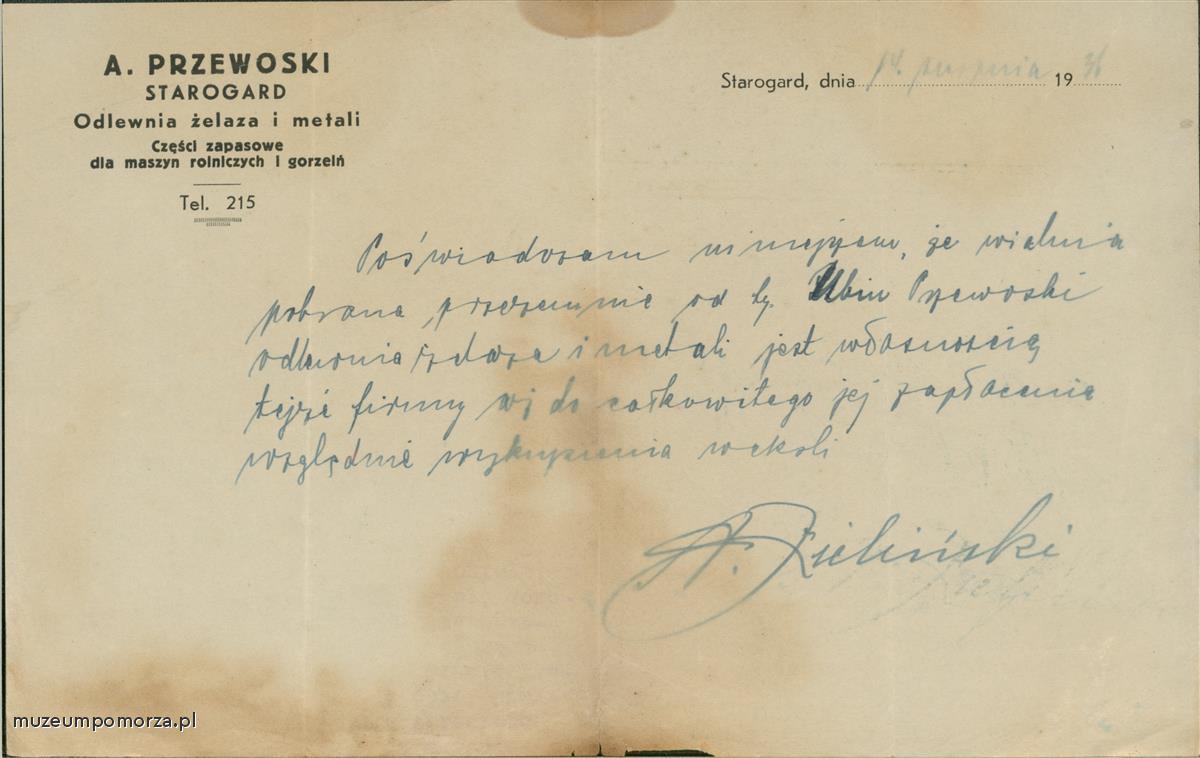 A. PRZEWOSKI
STAROGARD
Odlewnia żelaza i metali
Części zapasowe
dla maszyn rolniczych i gorzelń
Tel. 215
Starogard, dnia 14. 19 36
Poświadczam niniejszem, że
pobrana przezemnie od fy. Przewoski
odlewnia żelaza i metali jest własnością
tejże firmy aż do całkowitego jej zapłacenia
względnie wykupienia weksli
A. Zieliński
muzeumpomorza.pl